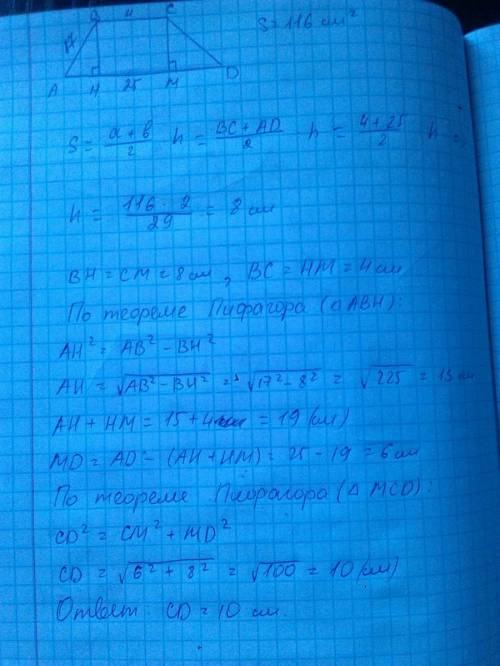 B 4 C
S = 116 см²
17
A H 25 M D
S = \frac{a + b}{2} h = \frac{BC + AD}{2} h = \frac{4 + 25}{2} h =
h = \frac{116 · 2}{29} = 8 см
BH = CM = 8 см, BC = HM = 4 см
По теореме Пифагора (△ABH):
AH² = AB² − BH²
AH = √(AB² − BH²) = √(17² − 8²) = √225 = 15 см
AH + HM = 15 + 4 = 19 (см)
MD = AD − (AH + HM) = 25 − 19 = 6 см
По теореме Пифагора (△ MCD):
CD² = CM² + MD²
CD = √(6² + 8²) = √100 = 10 (см)
Ответ: CD = 10 см.